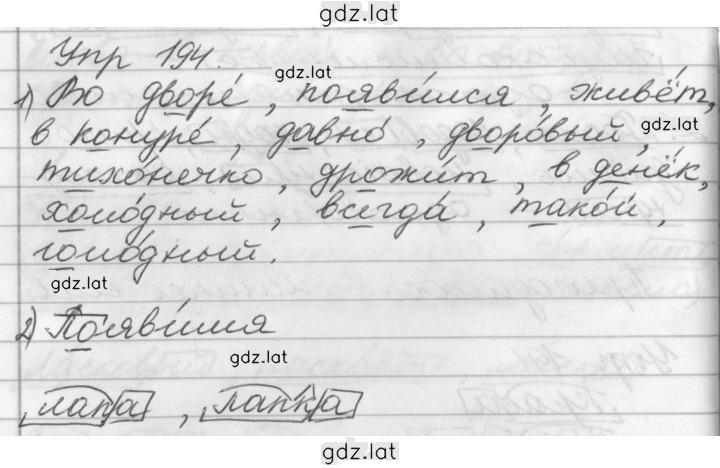 gdz.lat
Упр 194.
gdz.lat
1) Во дворе́, появи́лся, живёт,
в конуре́, давно́, дворо́вый,
gdz.lat
тихо́нечко, дрожи́т, в денёк,
холо́дный, всегда́, тако́й,
голо́дный.
gdz.lat
2) Появи́лся
gdz.lat
лапа, лапка
gdz.lat